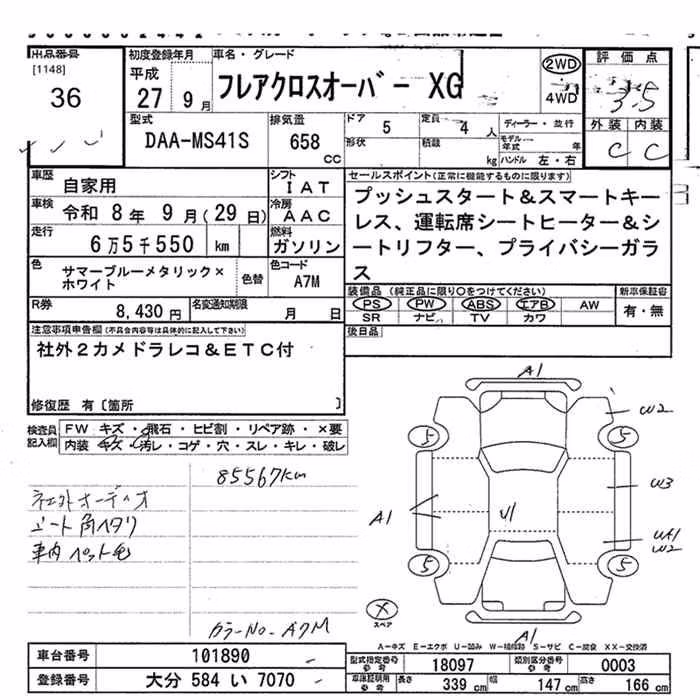 出品番号
[1148]
36
初度登録年月
平成
27 9月
車名・グレード
フレアクロスオーバー XG
2WD
・
4WD
評価点
3.5
外装 内装
C C
型式
DAA-MS41S
排気量
658
CC
ドア 5
定員 4 人
形状
積載 kg
ディーラー・並行
モデル年式 年
ハンドル 左・右
車歴
自家用
シフト
IAT
車検
令和 8年 9月(29日)
冷房
AAC
走行
6万5千550 km
燃料
ガソリン
色
サマーブルーメタリック×
ホワイト
色替
色コード
A7M
R券
8,430円
名変通知期限
月 日
セールスポイント(正常に機能するものに限ります)
プッシュスタート&スマートキー
レス、運転席シートヒーター&シ
ートリフター、プライバシーガラ
ス
装備品 (純正品に限り○をつけてください)
新車保証書
PS PW ABS エアB AW
有・無
SR ナビ TV カワ
後日品
注意事項申告欄(不具合内容等は具体的に記入して下さい)
社外2カメドラレコ&ETC付
修復歴 有〔箇所 〕
検査員
記入欄
FW キズ・飛石・ヒビ割・リペア跡・×要
内装 キズ・汚レ・コゲ・穴・スレ・キレ・破レ
85567km
オーディオ
シート角ヘタリ
車内ペット毛
カラーNo. A7M
A1
W2
3
3
W3
A1
U1
UA1
W2
5
5
×
スペア
A1
A-キズ E-エクボ U-凹み W-補修跡 S-サビ C-腐食 XX-交換済
車台番号
101890
登録番号
大分 584 い 7070
型式指定番号
参考
18097
類別区分番号
参考
0003
車庫証明用
参考
長さ 339 cm
幅 147 cm
高さ 166 cm